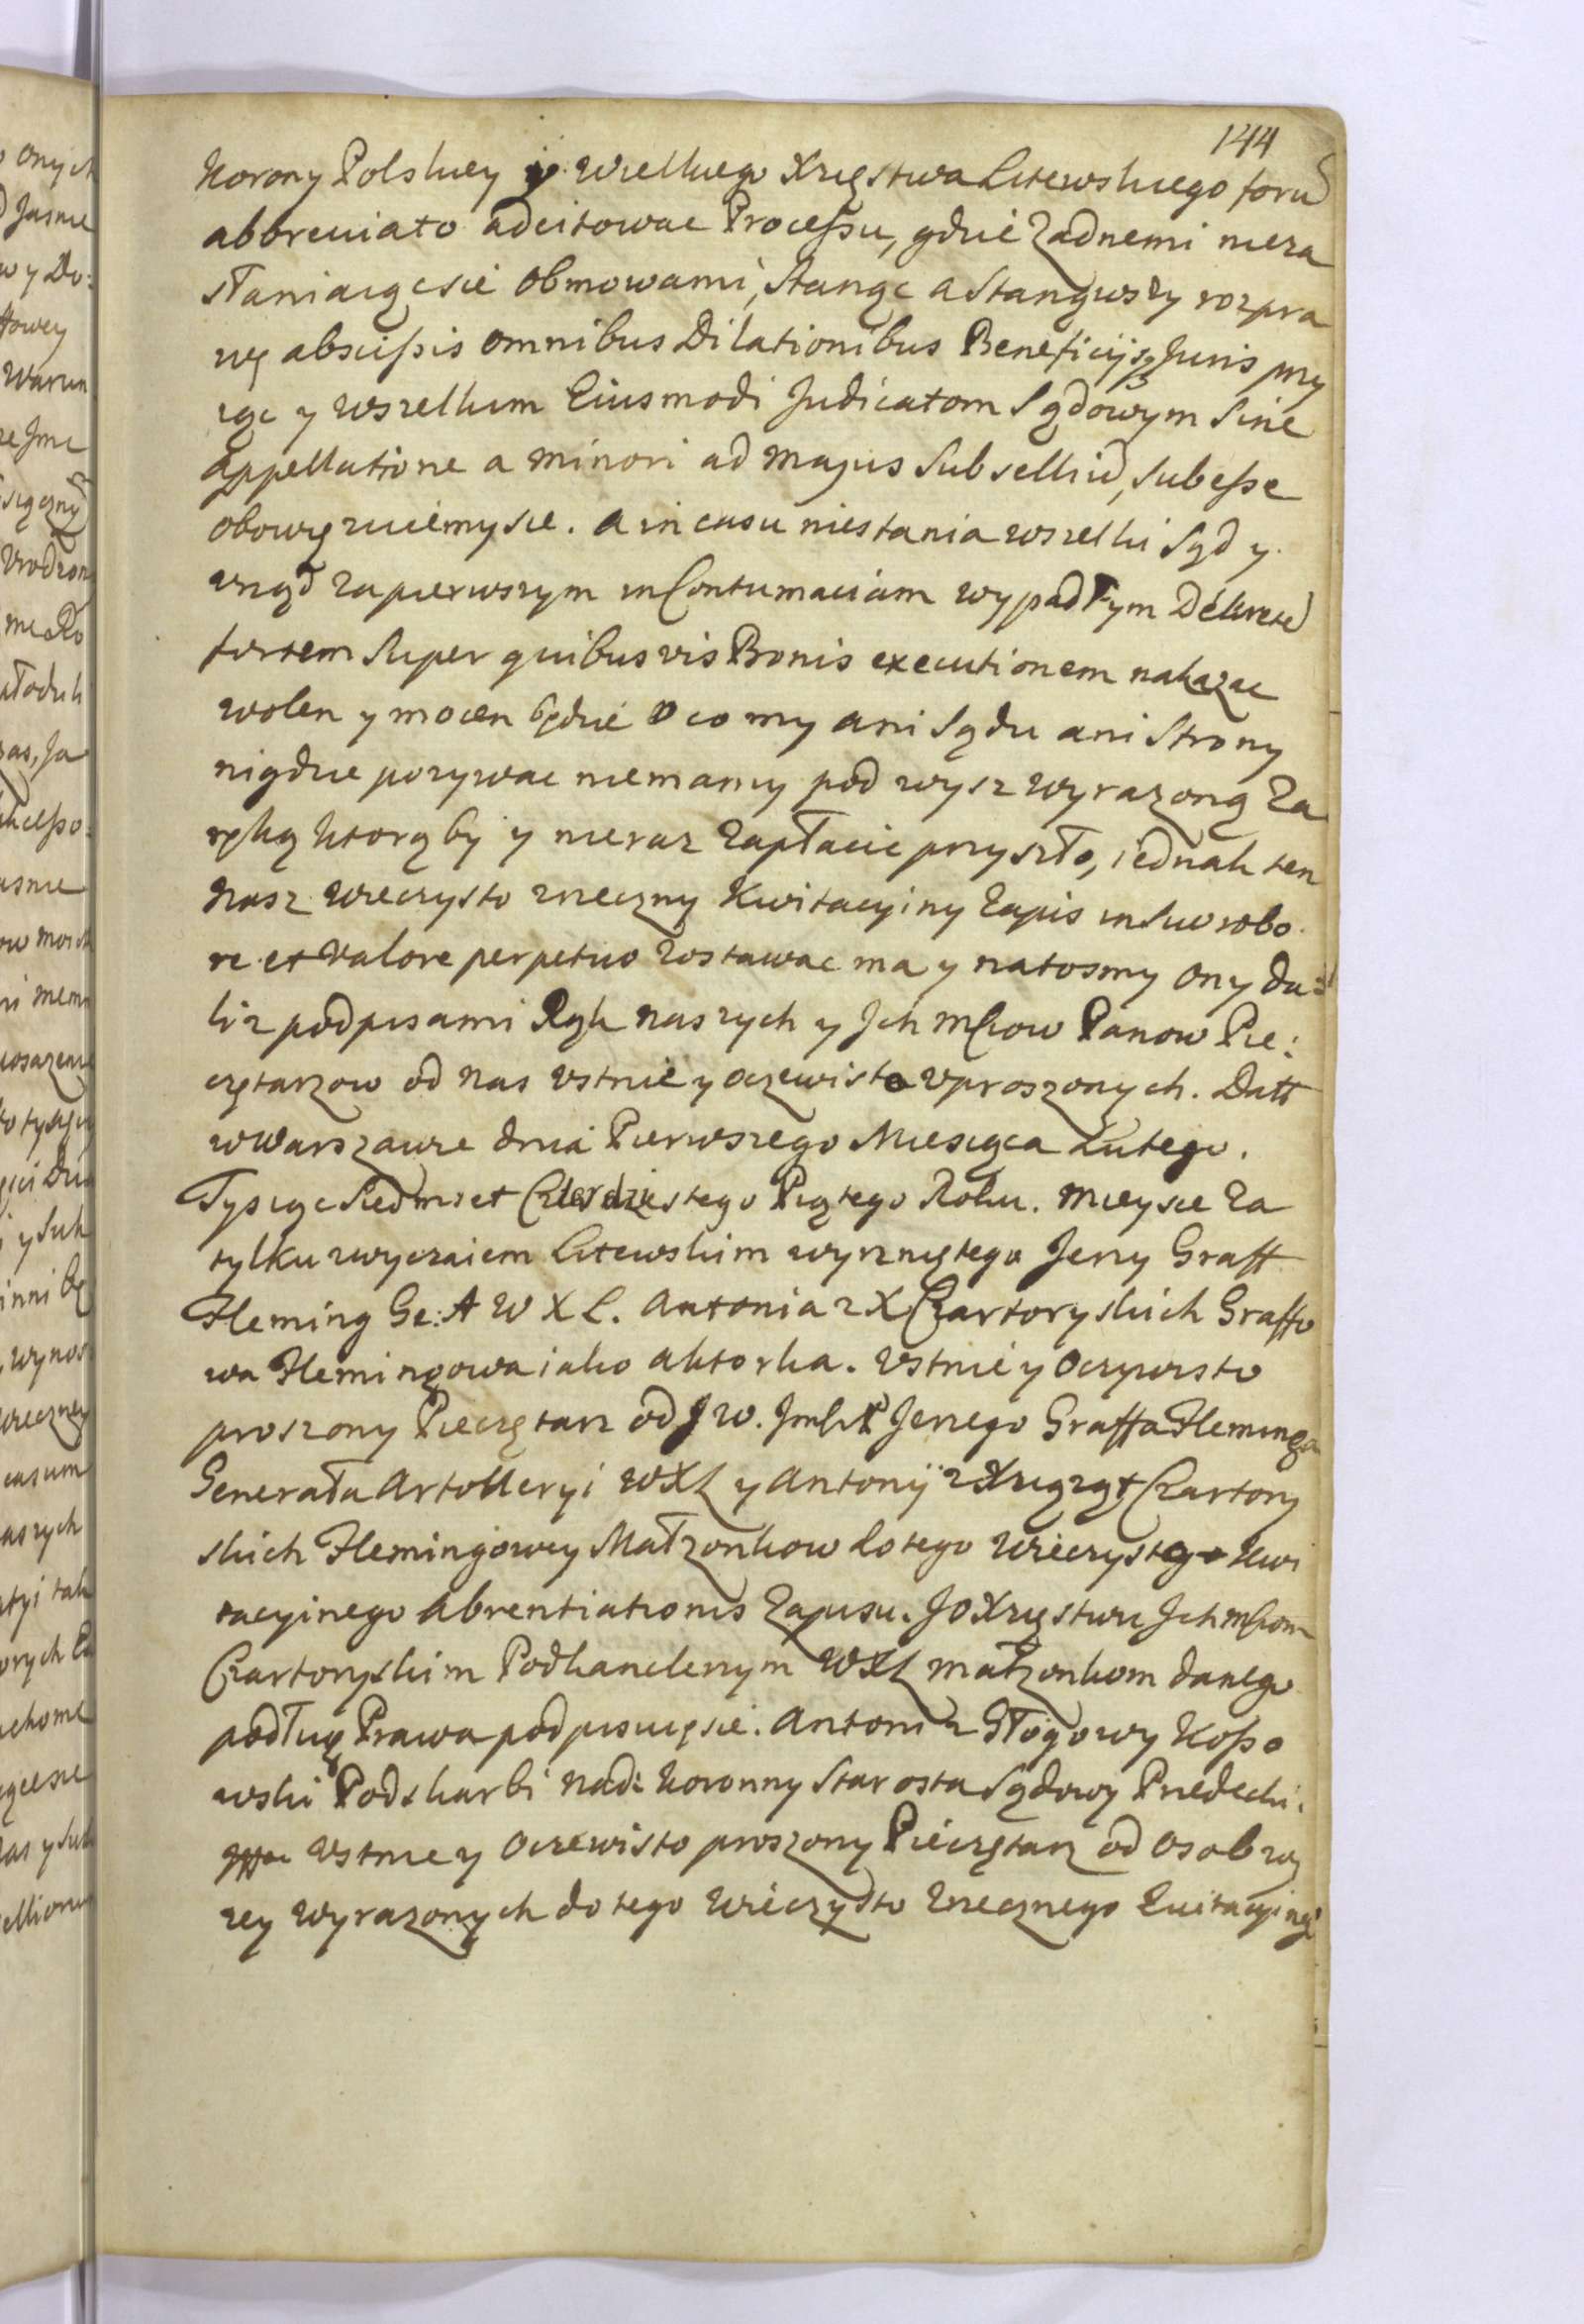 144
Korony Polskiey y Wielkiego Xięstwa Litewskiego foru
abbreviato adcitowac Processu, gdzie żadnemi nieza
słaniaiąc się obmowami, stanąc a stanąwszy rozpra
wę abscissis omnibus Dilationibus Beneficijsq Juris przy
iąc y wszelkim Eiusmodi Judicatom Sądowym sine
appellatione a minori ad majus Subselliu, subesse
obowięzuiemy sie. a in casu niestania wszelki Sąd y
urząd za pierwszym in Contumaciam wypadłym Dekrete
fortem super quibusvis Bonis executionem nakazac
wolen y mocen będzie o co my ani Sądu ani Strony
nigdzie pozywac niemamy pod wysz wyrazoną Za
ręką ktorąby y nieraz zapłacic przyszło, iednak ten
nasz wieczysto zrzeczny Kwitacyiny Zapis in suo robo
re et valore perpetuo zostawac ma y natosmy ony da=
li z podpisami Rąk naszych y Jch mciow Panow Pie:
czętarzow od nas ustnie y oczewisto uproszonych. Datt
w Warszawie dnia Pierwszego Miesiąca Lutego.
Tysiąc Siedmset Czterdziestego Piątego Roku. Mieysce Za
tylku zwyczaiem Litewskim wyrzniętego Jerzy Graff
Fleming Ge: A W X L. Antonia z X Czartoryskich Graffo
wa Flemingowa iako aktorka. Ustnie y Oczywisto
proszony Pieczętarz od J W. Jmci P Jerzego Graffa Fleminga
Generała Artolleryi WXL y Antonij z Xiążąt Czartory
skich Flemingowey Małzonkow do tego wieczystego Kwi
tacyinego abrentiationis Zapisu. JO Xięstwu Jch mciom
Czartoryskim Podkanclerzym WXL małzonkom danego
podług Prawa podpisuię sie. Antoni z Głogowy Kosso
wski Podskarbi Nad: Koronny Starosta Sądowy Przedecki.
Ustnie y Oczewisto proszony Pieczętarz od osob wy
zey wyrazonych do tego wieczysto zrzecznego Kwitacyineg